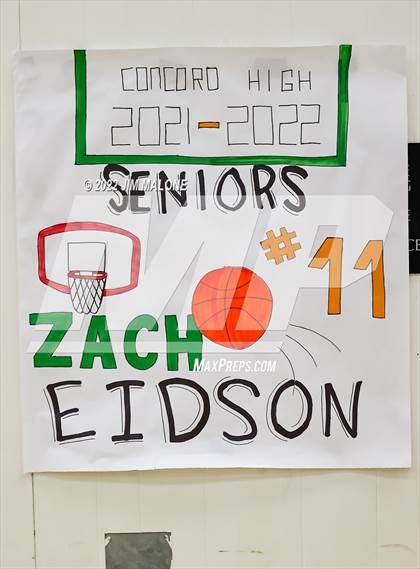 CONCORD HIGH
2021-2022
SENIORS
© 2022 JIM MALONE
#11
ZACH
MAXPREPS.COM
EIDSON